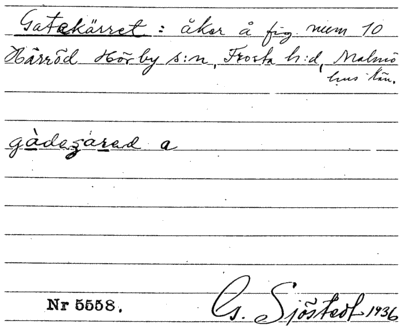 Gatekärret : åker å fig num 10
Härröd Hörby s:n, Frosta h:d, Malmö
hus län.
gàdeɡ̀ạrad a
Nr 5558.
G. Sjöstedt 1936